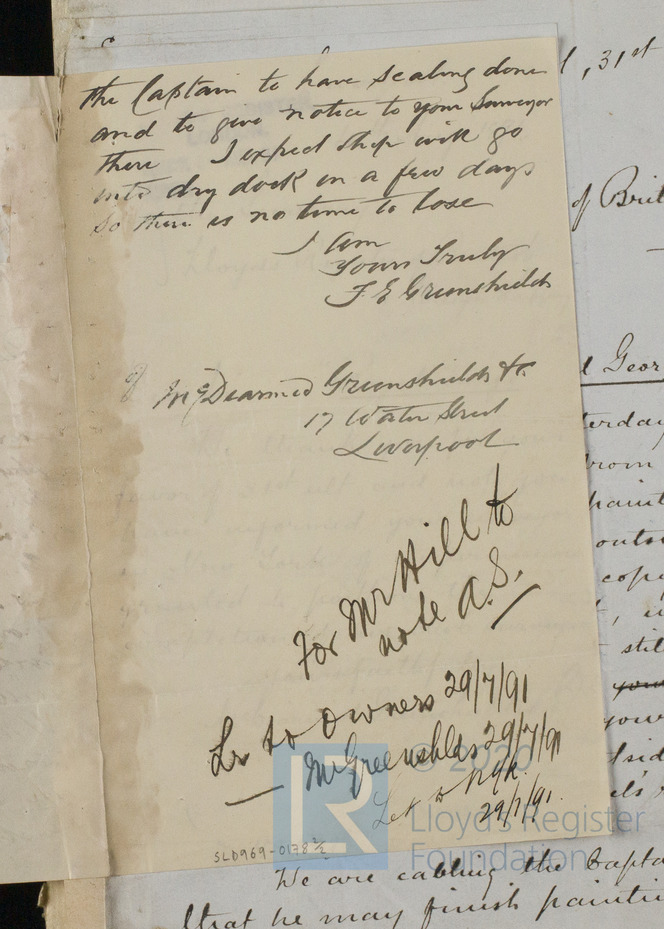 the Captain to have scaling done
and to give notice to your Surveyor
there I expect ship will go
into dry dock in a few days
so there is no time to lose
I am
Yours Truly
F E Greenshields
McDiarmid Greenshields & Co
17 Water Street
Liverpool
For Mr Hill to
note A.S.
Lr to Owners 29/7/91
— Mr Greenshlds 29/7/91
Let to NYk.
29/7/91.
SLD969-0178
, 31st
of Brit
Geor
terday
from
paint
outsi
copi
still
your
We are cabling the Capta
that he may finish painti
© 2020
LR
Lloyd's Register
Foundation